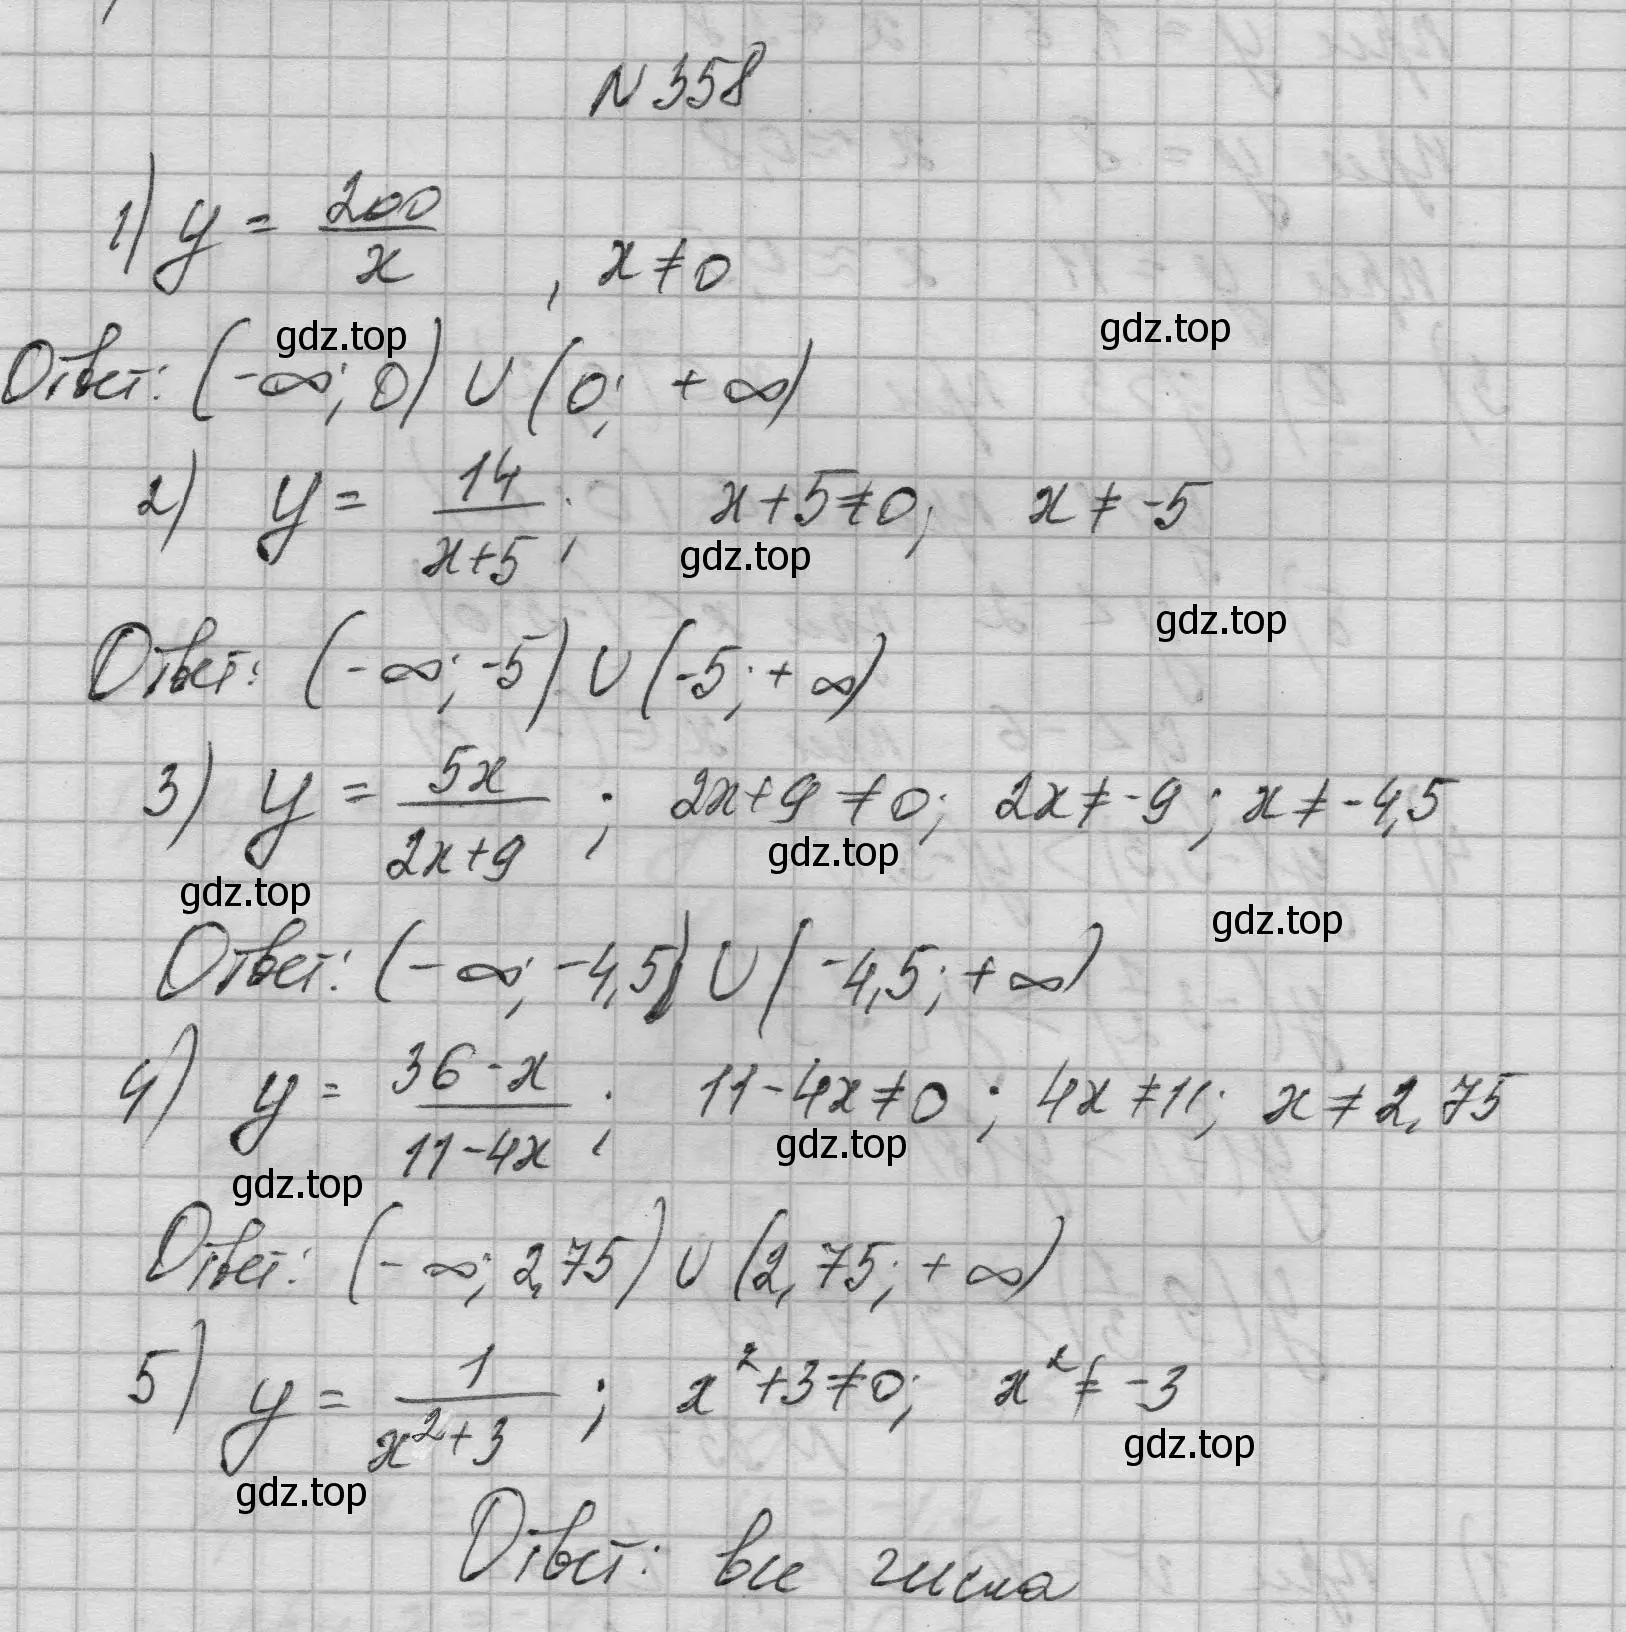 N 358
1) y = 200/x , x ≠ 0
gdz.top gdz.top
Ответ: (-∞; 0) ∪ (0; +∞)
2) y = 14/(x+5); x+5≠0; x ≠ -5
gdz.top
gdz.top
Ответ: (-∞; -5) ∪ (-5; +∞)
3) y = 5x/(2x+9); 2x+9 ≠ 0; 2x ≠ -9; x ≠ -4,5
gdz.top gdz.top
gdz.top
Ответ: (-∞; -4,5) ∪ (-4,5; +∞)
4) y = (36-x)/(11-4x); 11-4x≠0; 4x≠11; x ≠ 2,75
gdz.top gdz.top
Ответ: (-∞; 2,75) ∪ (2,75; +∞)
5) y = 1/(x²+3); x²+3≠0; x² ≠ -3
gdz.top gdz.top
Ответ: все числа